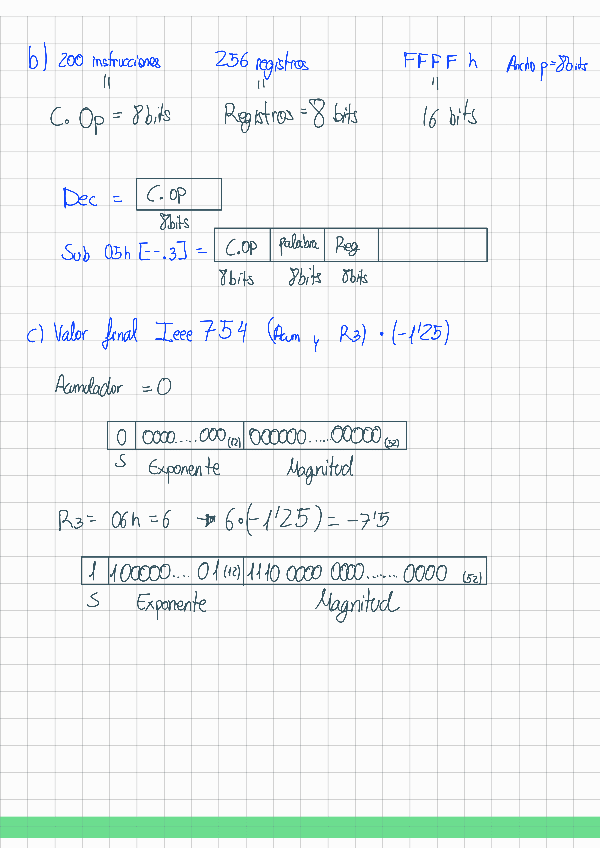 b) 200 instrucciones 256 registros FFFF h Ancho p = 8bits
= = =
C. Op = 8bits Registros = 8 bits 16 bits
Dec = C. OP
8bits
Sub 05h [--.3] = C.OP palabra Reg
8bits 8bits 8bits
c) Valor final Ieee 754 (Acum y R3) · (-1'25)
Acumulador = 0
0 0000.....000 (12) 000000.....00000 (52)
S Exponente Magnitud
R3 = 06h = 6 → 6·(-1'25) = -7'5
1 100000.... 01 (12) 1110 0000 0000....... 0000 (52)
S Exponente Magnitud